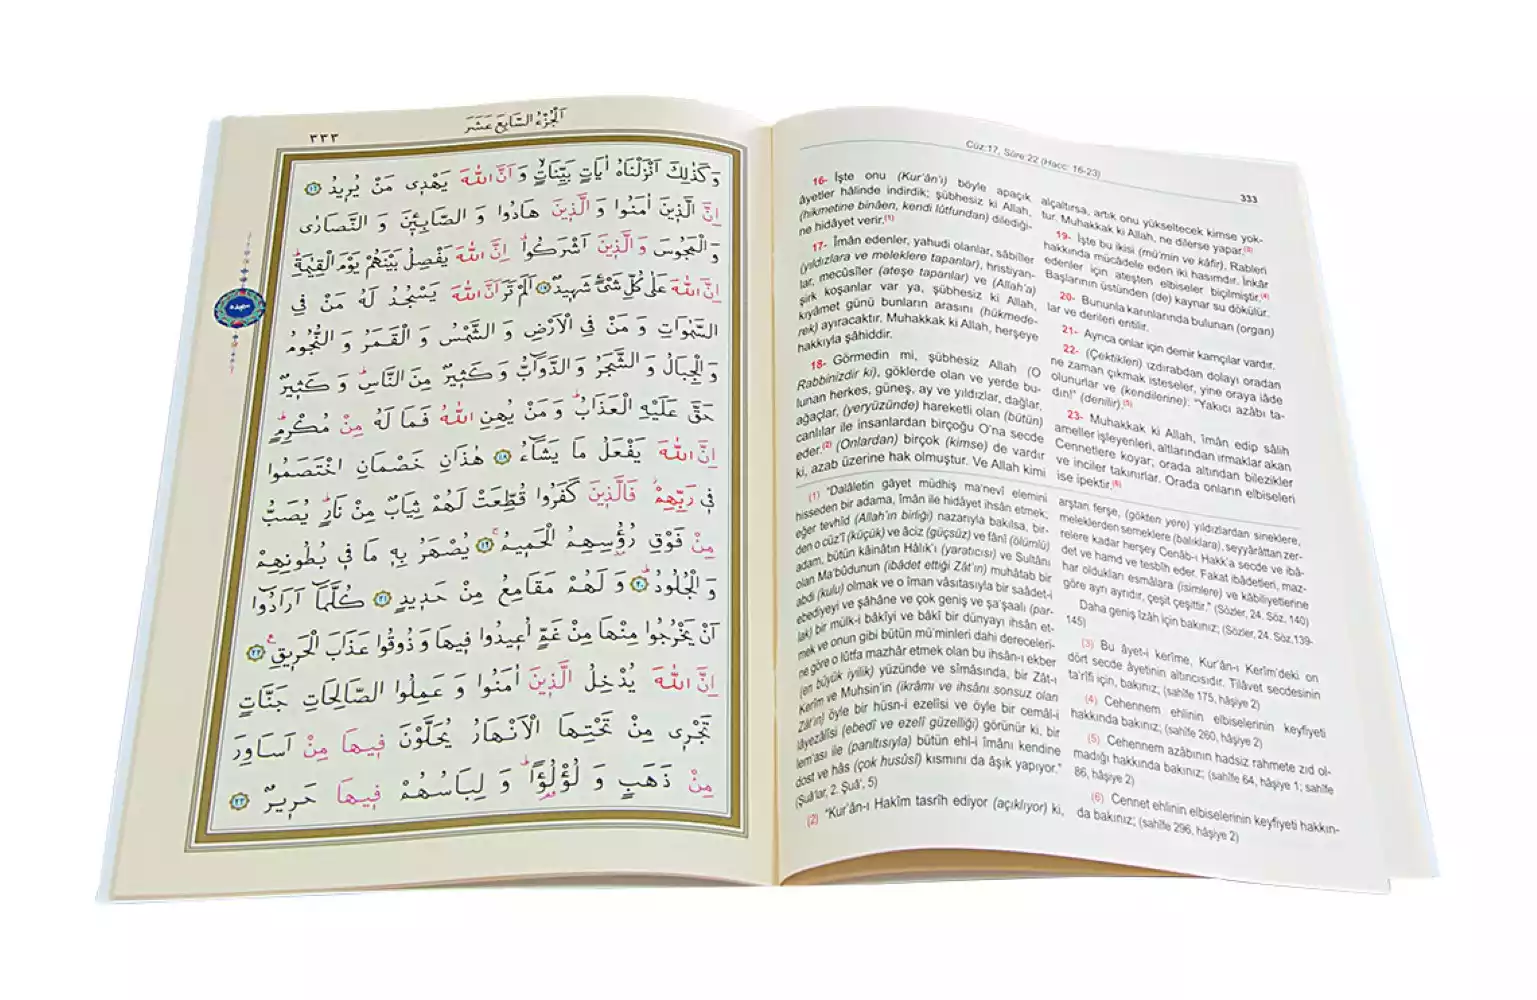 ٣٣٣
اَلْجُزْءُ السَّابِعَ عَشَرَ
وَكَذٰلِكَ اَنْزَلْنَاهُ اٰيَاتٍ بَيِّنَاتٍۙ وَاَنَّ اللّٰهَ يَهْدٖى مَنْ يُرٖيدُ ﴿١٦﴾
اِنَّ الَّذٖينَ اٰمَنُوا وَ الَّذٖينَ هَادُوا وَ الصَّابِـٖٔينَ وَ النَّصَارٰى
وَ الْمَجُوسَ وَ الَّذٖينَ اَشْرَكُواۗ اِنَّ اللّٰهَ يَفْصِلُ بَيْنَهُمْ يَوْمَ الْقِيٰمَةِۜ
اِنَّ اللّٰهَ عَلٰى كُلِّ شَیْءٍ شَهٖيدٌ ﴿١٧﴾ اَلَمْ تَرَ اَنَّ اللّٰهَ يَسْجُدُ لَهُ مَنْ فِى
سجده
السَّمٰوَاتِ وَ مَنْ فِى الْاَرْضِ وَ الشَّمْسُ وَ الْقَمَرُ وَ النُّجُومُ
وَ الْجِبَالُ وَ الشَّجَرُ وَ الدَّوَٓابُّ وَ كَثٖيرٌ مِنَ النَّاسِۜ وَ كَثٖيرٌ
حَقَّ عَلَيْهِ الْعَذَابُۜ وَ مَنْ يُهِنِ اللّٰهُ فَمَا لَهُ مِنْ مُكْرِمٍۜ
اِنَّ اللّٰهَ يَفْعَلُ مَا يَشَٓاءُ ﴿١٨﴾ هٰذَانِ خَصْمَانِ اخْتَصَمُوا
فٖى رَبِّهِمْۘ فَالَّذٖينَ كَفَرُوا قُطِّعَتْ لَهُمْ ثِيَابٌ مِنْ نَارٍۜ يُصَبُّ
مِنْ فَوْقِ رُؤُسِهِمُ الْحَمٖيمُۚ ﴿١٩﴾ يُصْهَرُ بِهٖ مَا فٖى بُطُونِهِمْ
وَ الْجُلُودُۜ ﴿٢٠﴾ وَ لَهُمْ مَقَامِعُ مِنْ حَدٖيدٍ ﴿٢١﴾ كُلَّمَٓا اَرَادُٓوا
اَنْ يَخْرُجُوا مِنْهَا مِنْ غَمٍّ اُعٖيدُوا فٖيهَا وَ ذُوقُوا عَذَابَ الْحَرٖيقِ۟ ﴿٢٢﴾
اِنَّ اللّٰهَ يُدْخِلُ الَّذٖينَ اٰمَنُوا وَ عَمِلُوا الصَّالِحَاتِ جَنَّاتٍ
تَجْرٖى مِنْ تَحْتِهَا الْاَنْهَارُ يُحَلَّوْنَ فٖيهَا مِنْ اَسَاوِرَ
مِنْ ذَهَبٍ وَ لُؤْلُؤًاۜ وَ لِبَاسُهُمْ فٖيهَا حَرٖيرٌ ﴿٢٣﴾
Cüz:17, Sûre:22 (Hacc: 16-23)
333
16- İşte onu (Kur'ân'ı) böyle apaçık
âyetler hâlinde indirdik; şübhesiz ki Allah,
(hikmetine binâen, kendi lûtfundan) dilediği-
ne hidâyet verir.(1)
17- Îmân edenler, yahudi olanlar, sâbiîler
(yıldızlara ve meleklere tapanlar), hristiyan-
lar, mecûsîler (ateşe tapanlar) ve (Allah'a)
şirk koşanlar var ya, şübhesiz ki Allah,
kıyâmet günü bunların arasını (hükmede-
rek) ayıracaktır. Muhakkak ki Allah, herşeye
hakkıyla şâhiddir.
18- Görmedin mi, şübhesiz Allah (O
Rabbinizdir ki), göklerde olan ve yerde bu-
lunan herkes, güneş, ay ve yıldızlar, dağlar,
ağaçlar, (yeryüzünde) hareketli olan (bütün)
canlılar ile insanlardan birçoğu O'na secde
eder.(2) (Onlardan) birçok (kimse) de vardır
ki, azab üzerine hak olmuştur. Ve Allah kimi
alçaltırsa, artık onu yükseltecek kimse yok-
tur. Muhakkak ki Allah, ne dilerse yapar.(3)
19- İşte bu ikisi (mü'min ve kâfir), Rableri
hakkında mücâdele eden iki hasımdır. İnkâr
edenler için ateşten elbiseler biçilmiştir.(4)
Başlarının üstünden (de) kaynar su dökülür.
20- Bununla karınlarında bulunan (organ)
lar ve derileri eritilir.
21- Ayrıca onlar için demir kamçılar vardır.
22- (Çektikleri) ızdırabdan dolayı oradan
ne zaman çıkmak isteseler, yine oraya iâde
olunurlar ve (kendilerine): "Yakıcı azâbı ta-
dın!" (denilir).(5)
23- Muhakkak ki Allah, îmân edip sâlih
ameller işleyenleri, altlarından ırmaklar akan
Cennetlere koyar; orada altından bilezikler
ve inciler takınırlar. Orada onların elbiseleri
ise ipektir.(6)
(1) "Dalâletin gâyet müdhiş ma'nevî elemini
hisseden bir adama, îmân ile hidâyet ihsân etmek;
eğer tevhîd (Allah'ın birliği) nazarıyla bakılsa, bir-
den o cüz'î (küçük) ve âciz (güçsüz) ve fânî (ölümlü)
adam, bütün kâinâtın Hâlık'ı (yaratıcısı) ve Sultânı
olan Ma'bûdunun (ibâdet ettiği Zât'ın) muhâtab bir
abdi (kulu) olmak ve o îman vâsıtasıyla bir saâdet-i
ebediyeyi ve şâhâne ve çok geniş ve şa'şaalı (par-
lak) bir mülk-i bâkîyi ve bâkî bir dünyayı ihsân et-
mek ve onun gibi bütün mü'minleri dahi dereceleri-
ne göre o lûtfa mazhâr etmek olan bu ihsân-ı ekber
(en büyük iyilik) yüzünde ve sîmâsında, bir Zât-ı
Kerîm ve Muhsin'in (ikrâmı ve ihsânı sonsuz olan
Zât'ın) öyle bir hüsn-i ezelîsi ve öyle bir cemâl-i
lâyezâlîsi (ebedî ve ezelî güzelliği) görünür ki, bir
lem'ası ile (parıltısıyla) bütün ehl-i îmânı kendine
dost ve hâs (çok husûsî) kısmını da âşık yapıyor."
(Şuâ'lar, 2. Şuâ', 5)
(2) "Kur'ân-ı Hakîm tasrîh ediyor (açıklıyor) ki,
arştan ferşe, (gökten yere) yıldızlardan sineklere,
meleklerden semeklere (balıklara), seyyârâttan zer-
relere kadar herşey Cenâb-ı Hakk'a secde ve ibâ-
det ve hamd ve tesbîh eder. Fakat ibâdetleri, maz-
har oldukları esmâlara (isimlere) ve kâbiliyetlerine
göre ayrı ayrıdır, çeşit çeşittir." (Sözler, 24. Söz, 140)
Daha geniş îzâh için bakınız; (Sözler, 24. Söz,139-
145)
(3) Bu âyet-i kerîme, Kur'ân-ı Kerîm'deki on
dört secde âyetinin altıncısıdır. Tilâvet secdesinin
ta'rîfi için, bakınız; (sahîfe 175, hâşiye 2)
(4) Cehennem ehlinin elbiselerinin keyfiyeti
hakkında bakınız; (sahîfe 260, hâşiye 2)
(5) Cehennem azâbının hadsiz rahmete zıd ol-
madığı hakkında bakınız; (sahîfe 64, hâşiye 1; sahîfe
86, hâşiye 2)
(6) Cennet ehlinin elbiselerinin keyfiyeti hakkın-
da bakınız; (sahîfe 296, hâşiye 2)